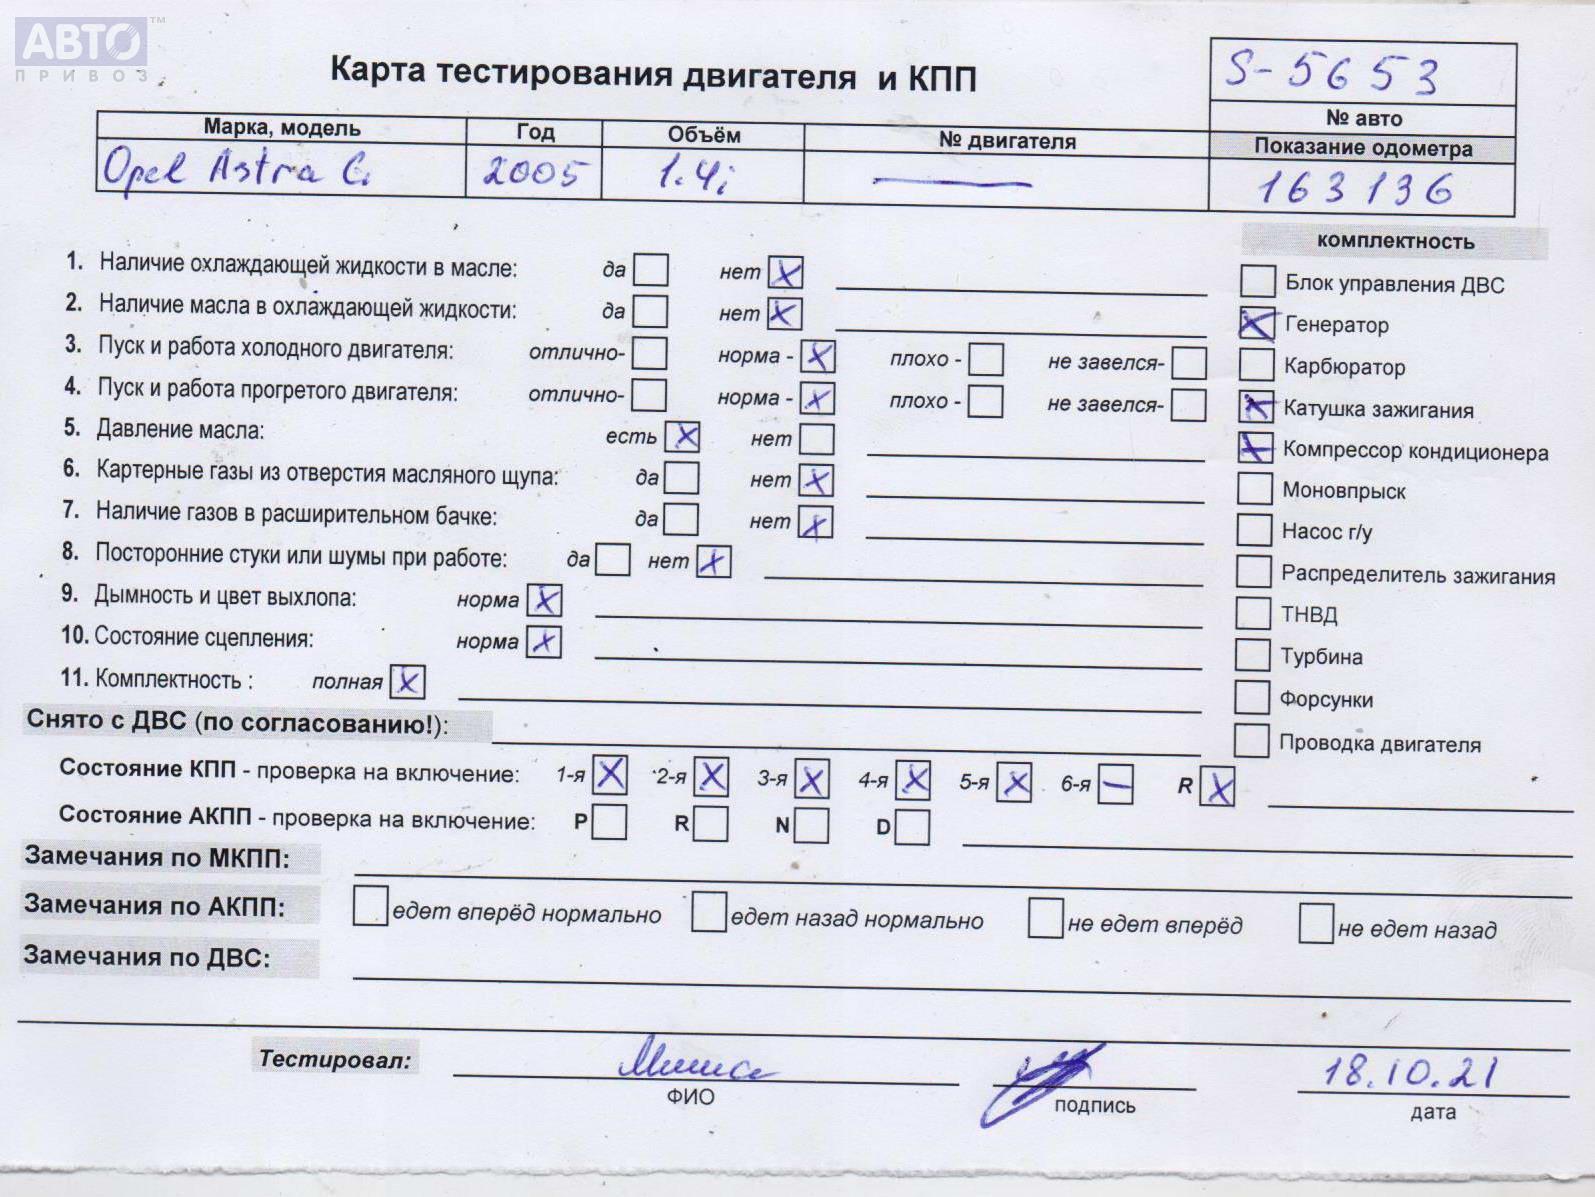 АВТО™
ПРИВОЗ
Карта тестирования двигателя и КПП
S-5653
№ авто
Марка, модель Год Объём № двигателя Показание одометра
Opel Astra G. 2005 1.4i — 163136
комплектность
1. Наличие охлаждающей жидкости в масле: да нет X
Блок управления ДВС
2. Наличие масла в охлаждающей жидкости: да нет X
X Генератор
3. Пуск и работа холодного двигателя: отлично- норма - X плохо - не завелся-
Карбюратор
4. Пуск и работа прогретого двигателя: отлично- норма - X плохо - не завелся-
X Катушка зажигания
5. Давление масла: есть X нет
X Компрессор кондиционера
6. Картерные газы из отверстия масляного щупа: да нет X
Моновпрыск
7. Наличие газов в расширительном бачке: да нет X
Насос г/у
8. Посторонние стуки или шумы при работе: да нет X
Распределитель зажигания
9. Дымность и цвет выхлопа: норма X
ТНВД
10. Состояние сцепления: норма X
Турбина
11. Комплектность : полная X
Форсунки
Снято с ДВС (по согласованию!):
Проводка двигателя
Состояние КПП - проверка на включение: 1-я X 2-я X 3-я X 4-я X 5-я X 6-я — R X
Состояние АКПП - проверка на включение: P R N D
Замечания по МКПП:
Замечания по АКПП: едет вперёд нормально едет назад нормально не едет вперёд не едет назад
Замечания по ДВС:
Тестировал: Миша 18.10.21
ФИО подпись дата